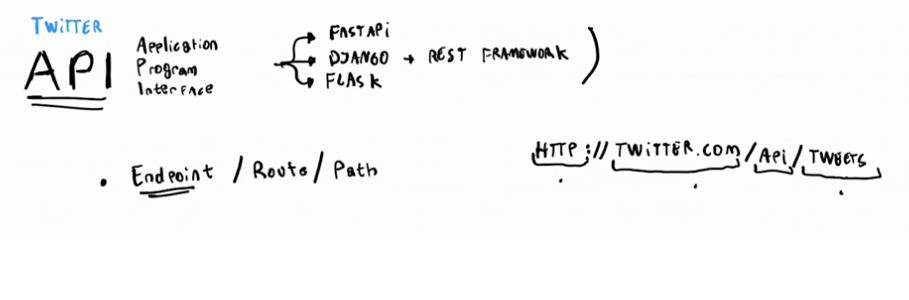 TWiTTER
API
Application
Program
Interface
FASTAPi
DJANGO → REST FRAMEWORK )
FLASK
• Endpoint / Route / Path
HTTP://TWiTTER.com/Api/TWEETS